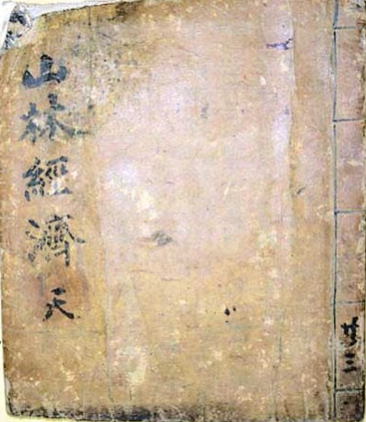 山林經濟 天
共三